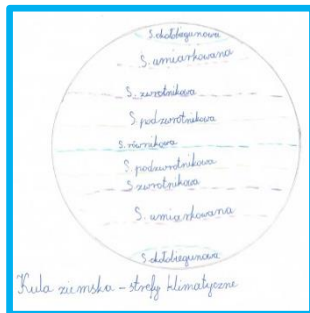 S. okołobiegunowa
S. umiarkowana
S. zwrotnikowa
S. podzwrotnikowa
S. równikowa
S. podzwrotnikowa
S. zwrotnikowa
S. umiarkowana
S. okołobiegunowa
Kula ziemska - strefy klimatyczne